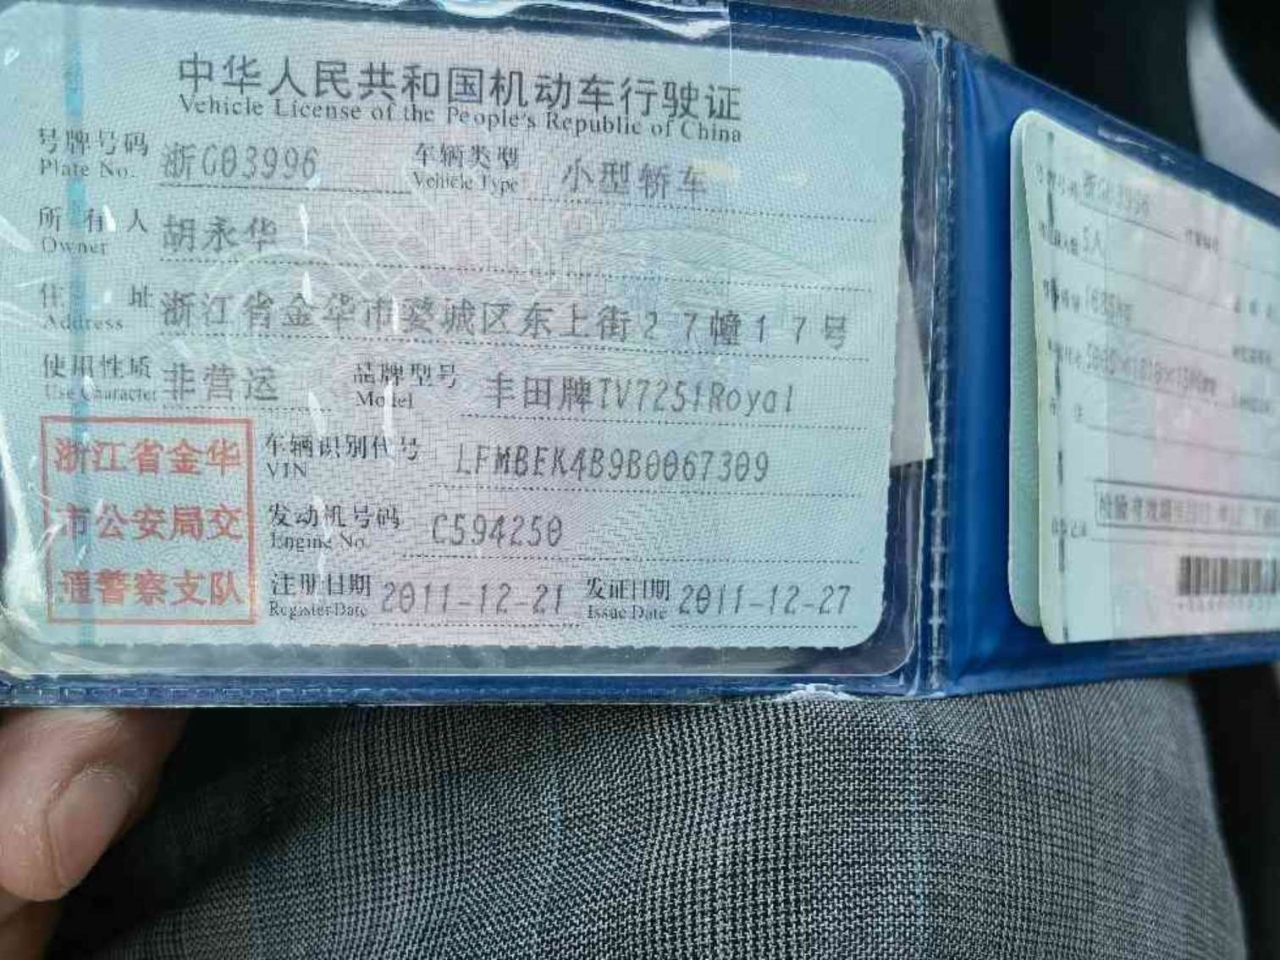 中华人民共和国机动车行驶证
Vehicle License of the People's Republic of China
号牌号码 浙G03996 车辆类型 小型轿车
Plate No. Vehicle Type
所有人 胡永华
Owner
住址 浙江省金华市婺城区东上街27幢17号
Address
使用性质 非营运 品牌型号 丰田牌TV7251Royal
Use Character Model
浙江省金华
市公安局交
通警察支队
车辆识别代号 LFMBEK4B9B0067309
VIN
发动机号码 C594250
Engine No.
注册日期 2011-12-21 发证日期 2011-12-27
Register Date Issue Date
5人